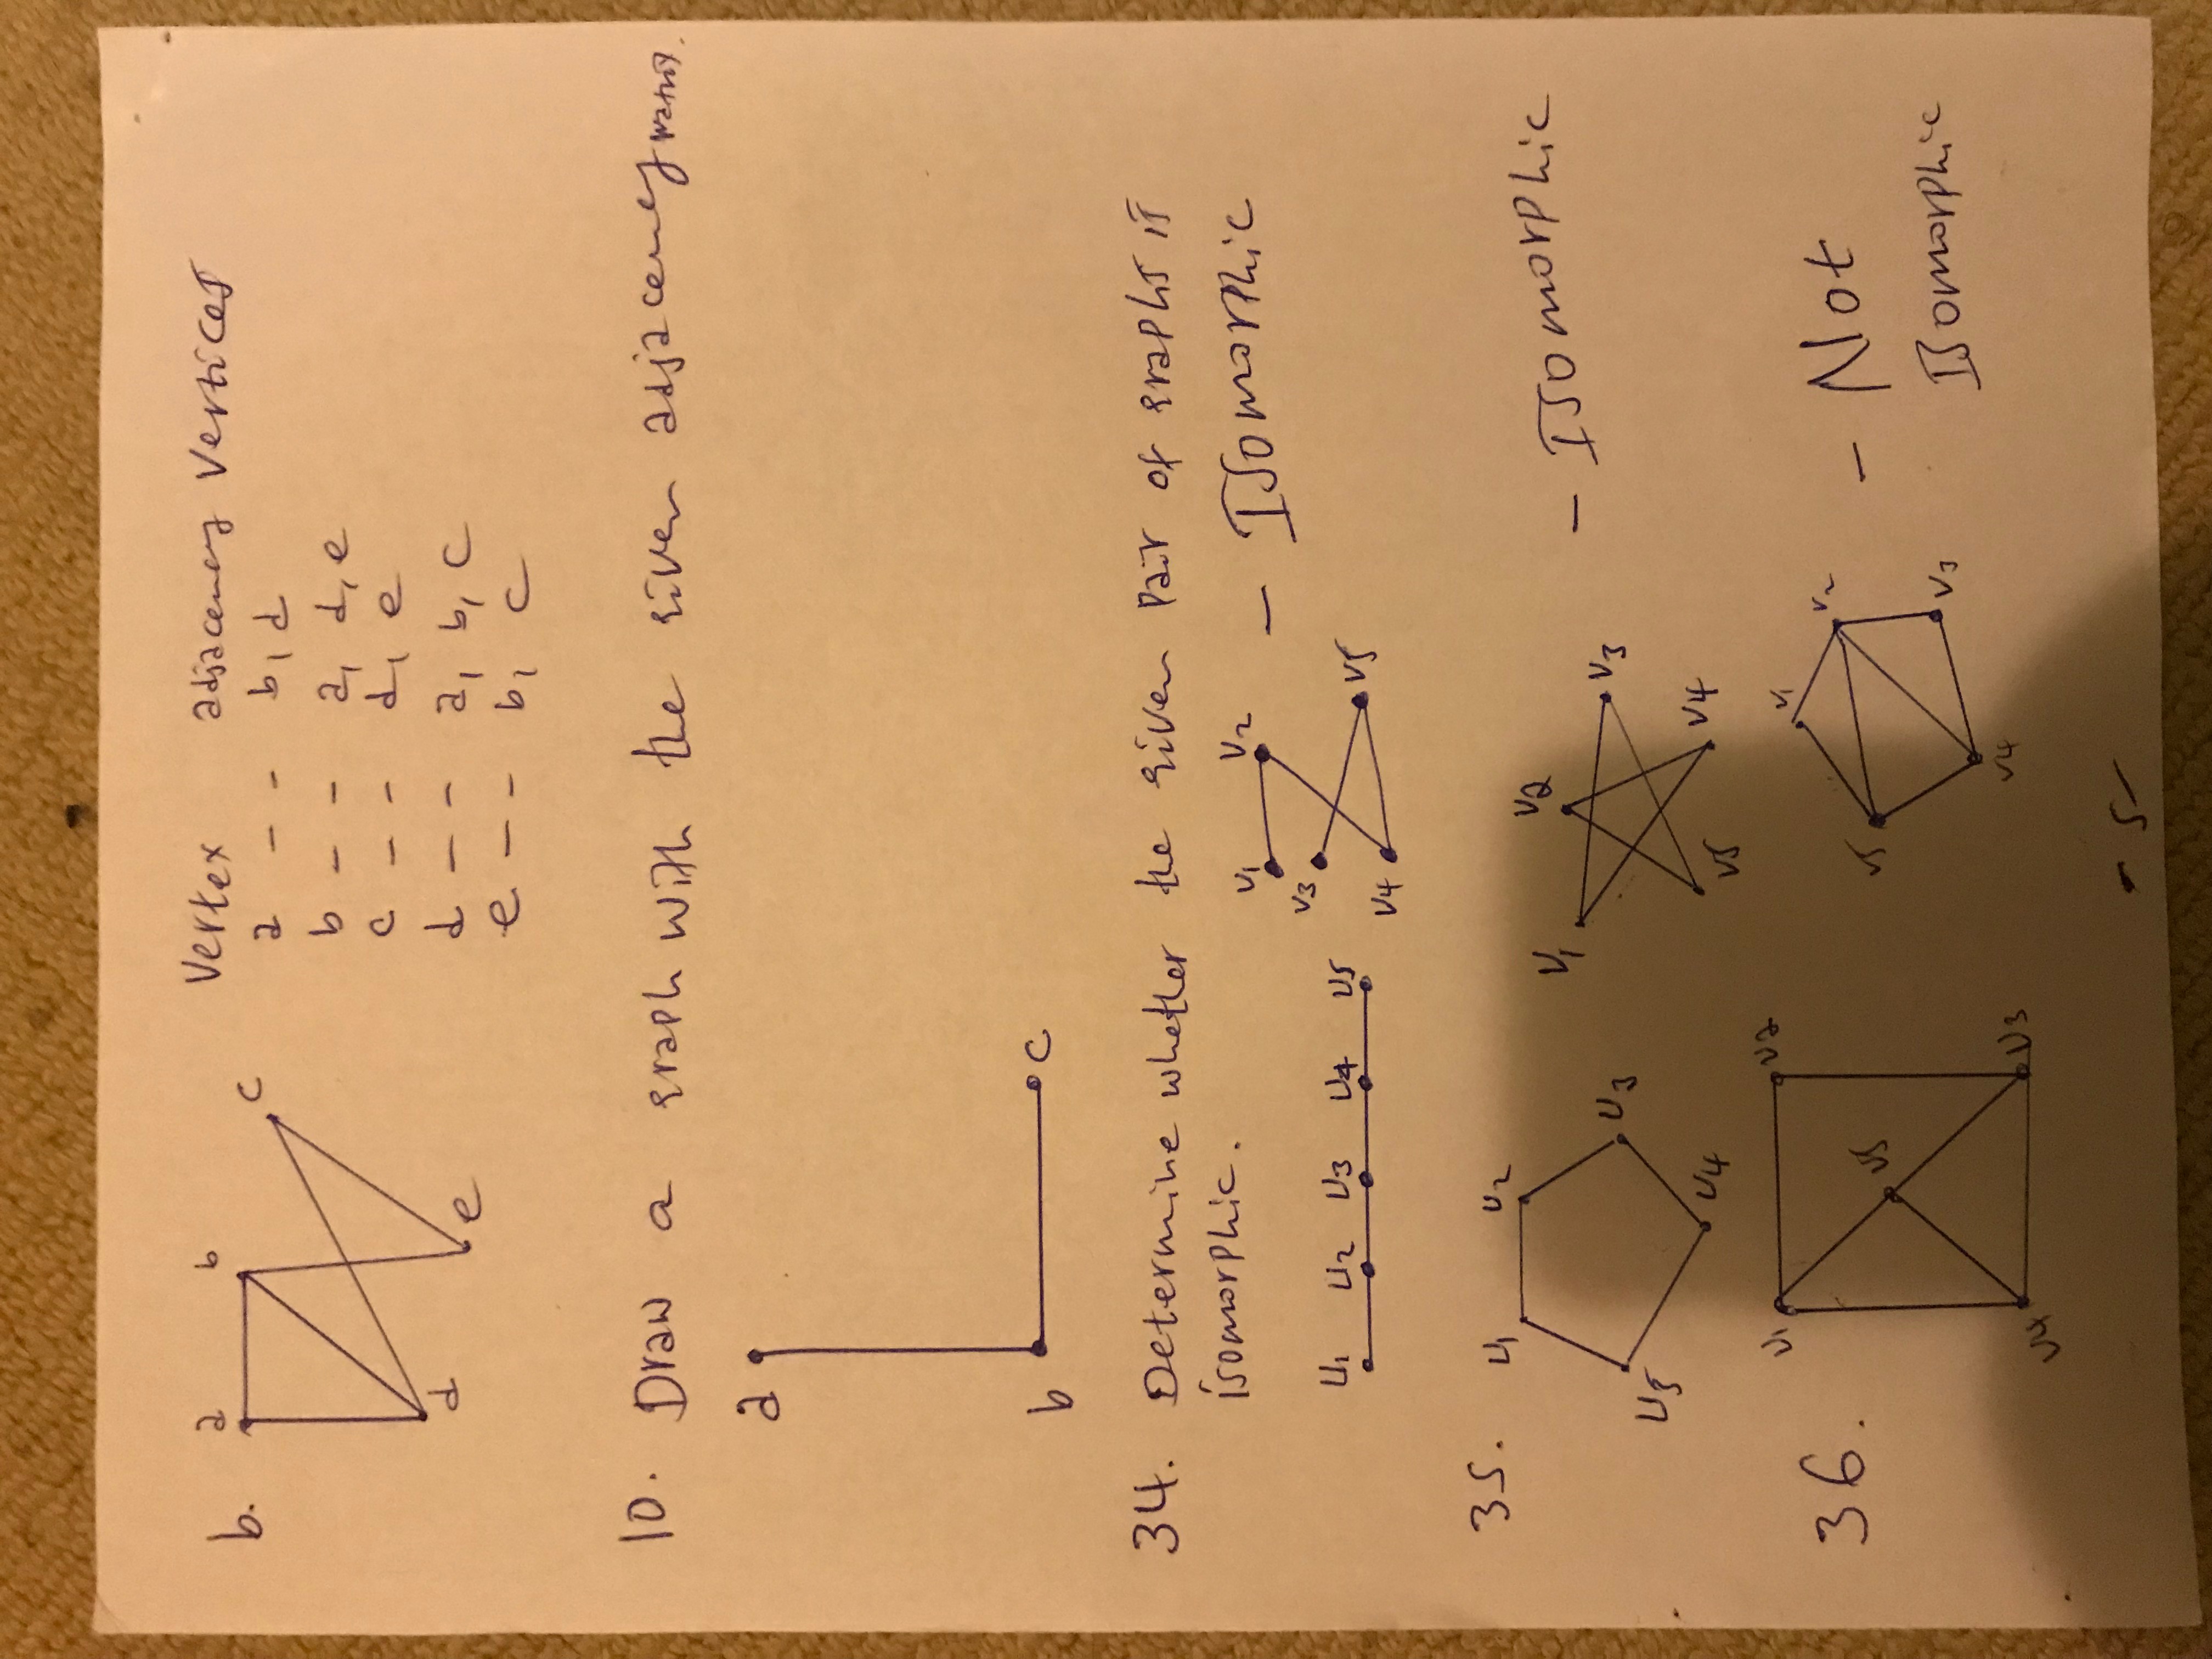 b. a b c d e
Vertex adjacency Vertices
a - - b, d
b - - a, d, e
c - - d, e
d - - a, b, c
e - - b, c
10. Draw a graph with the given adjacency matrix.
a
b c
34. Determine whether the given pair of graphs is
isomorphic.
u1 u2 u3 u4 u5
v1 v2 v3 v4 v5
- Isomorphic
35. u1 u2 u3 u4 u5
v1 v2 v3 v4 v5
- Isomorphic
36. u1 u2 u3 u4 u5
v1 v2 v3 v4 v5
- Not
Isomorphic
- 5 -